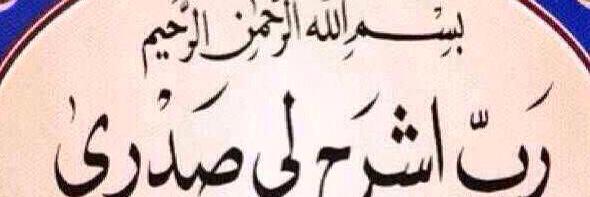 بِسْمِ اللّٰهِ الرَّحْمٰنِ الرَّحِیمِ
رَبِّ اشْرَحْ لی صَدْری